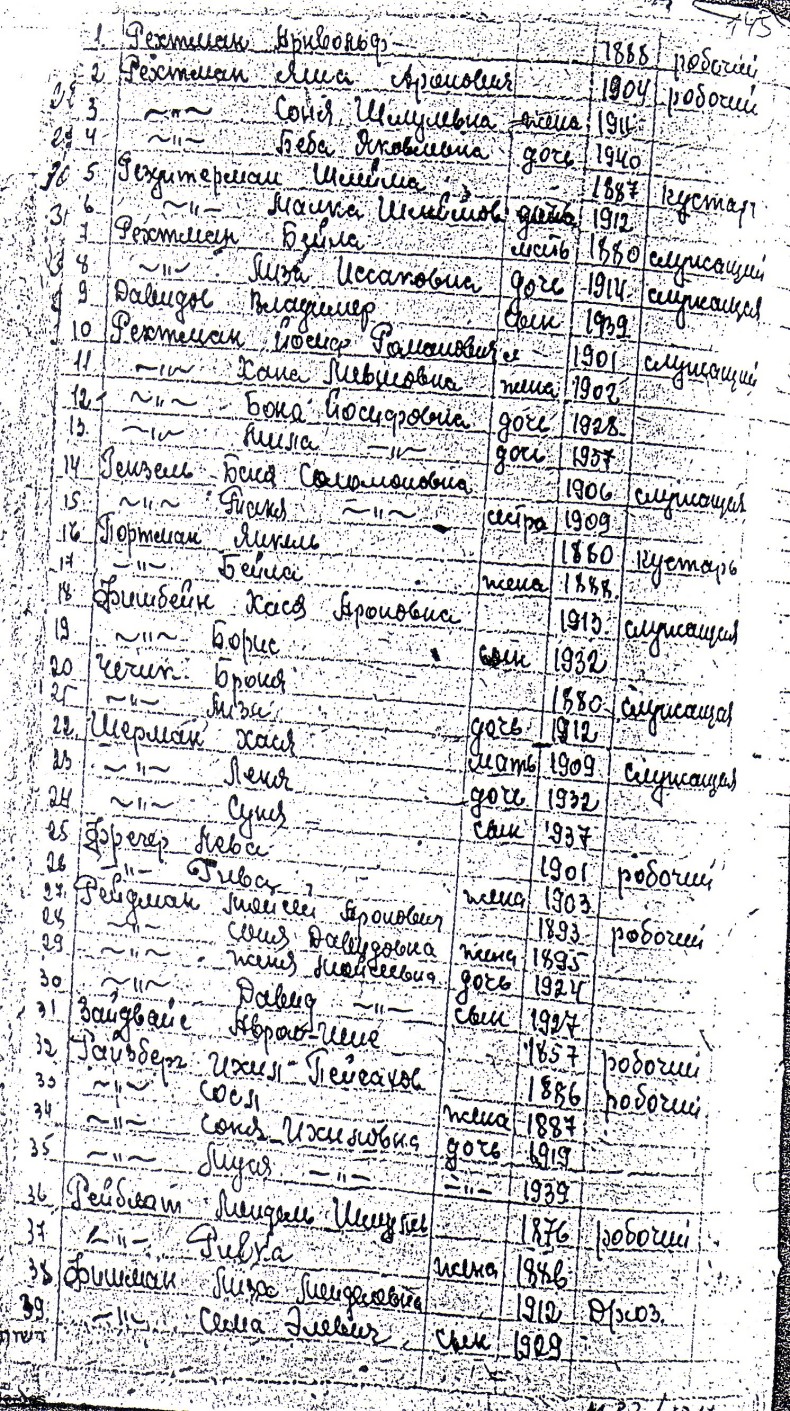 145
1. Рехтман Арнвольф 1888 рабочий
2 Рехтман Яша Аронович 1904 рабочий
3 ~"~ Соня Шмулевна жена 1911
4 ~"~ Беба Яковлевна дочь 1940
5 Шлёма 1887 кустарь
6 ~"~ Малка 1912
7 Рехтман Бейла мать 1880 служащий
8 ~"~ Лиза Иссаковна дочь 1914 служащая
9 Давидов Владимер сын 1939
10 Рехтман Иосиф Романович 1901 служащий
11 ~"~ Хана жена 1902
12 ~"~ Бона Иосифовна дочь 1928
13. ~"~ Нина ~"~ дочь 1937
14 Гензель Бася Соломоновна 1906 служащая
15 ~"~ Таня ~"~ сестра 1909
16 Портман Янкель 1880 кустарь
17 ~"~ Бейла жена 1888.
18 Фишбейн Хася Ароновна 1913. служащая
19 ~"~ Борис сын 1932
20 Чечик Броня 1880 служащая
21 ~"~ Лиза дочь 1912
22. Шерман Хася мать 1909 служащая
23 ~"~ Леня дочь 1932
24 ~"~ Суня сын 1937
25 1901 рабочий
26 ~"~ жена 1903
27. Рейдман Мойсей Аронович 1893 рабочий
28 ~"~ Соня Давидовна жена 1895
29 ~"~ Женя Мойсеевна дочь 1924
30 ~"~ Давид ~"~ сын 1927
31 Зайдвайс 1857 рабочий
32 Райзберг Ихил Пейсахов 1886 рабочий
33 ~"~ Сося жена 1887
34 ~"~ Соня Ихиловна дочь 1919
35 ~"~ Муся ~"~ ~"~ 1939
36 Рейблат Мендель 1876 рабочий
37 ~"~ Ривка жена 1886
38 Фишман Лиза Менделевна 1912 д/хоз.
39 ~"~ Сема сын 1929